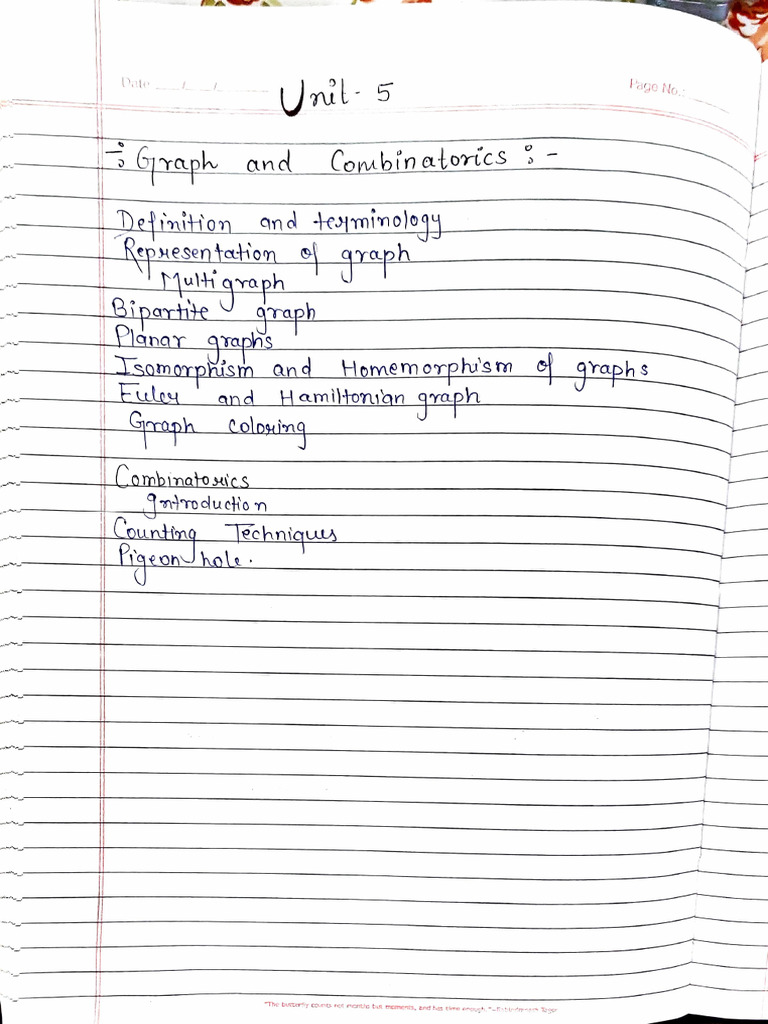 Date ___/___/______
Page No.:
Unit - 5
÷ Graph and Combinatorics :-
Definition and terminology
Representation of graph
Multigraph
Bipartite graph
Planar graphs
Isomorphism and Homemorphism of graphs
Euler and Hamiltonian graph
Graph coloring
Combinatorics
Introduction
Counting Techniques
Pigeon hole.
"The butterfly counts not months but moments, and has time enough."